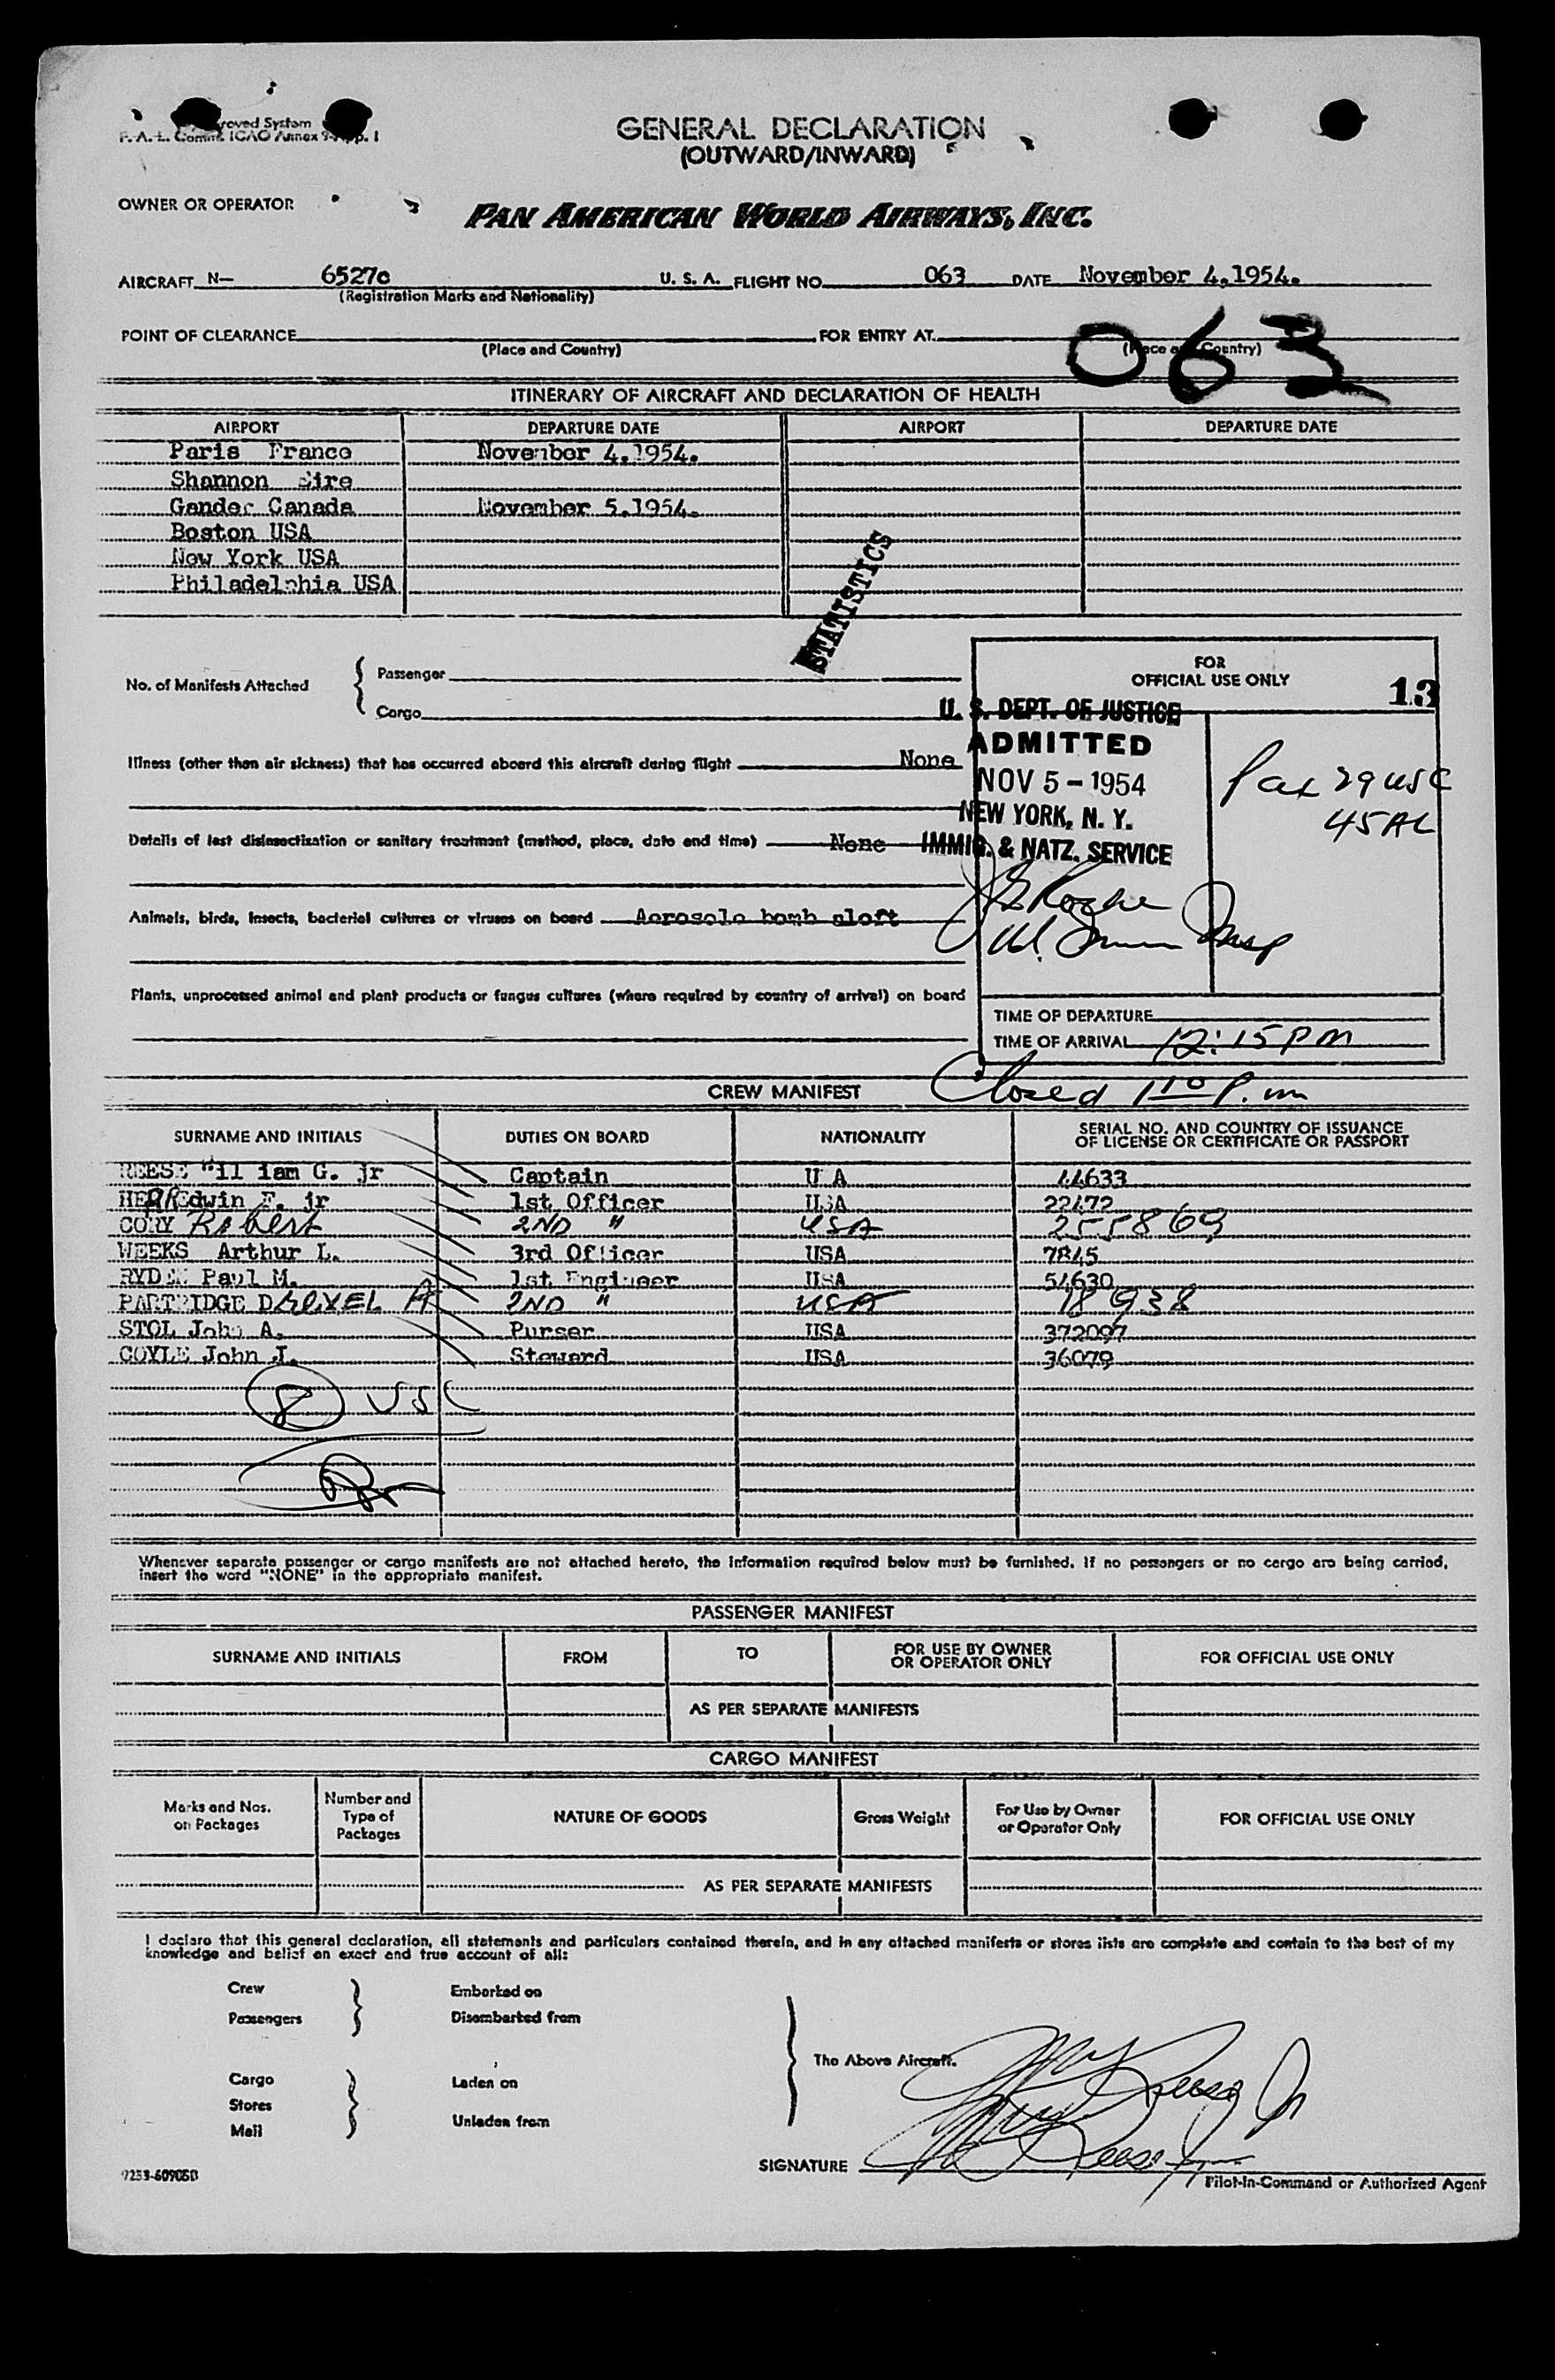 roved System
F. A. L. Comité ICAO Annex 9 App. 1
GENERAL DECLARATION
(OUTWARD/INWARD)
OWNER OR OPERATOR
PAN AMERICAN WORLD AIRWAYS, INC.
AIRCRAFT N— 6527c U. S. A. FLIGHT NO. 063 DATE November 4,1954.
(Registration Marks and Nationality)
POINT OF CLEARANCE FOR ENTRY AT
(Place and Country) (Place and Country)
063
ITINERARY OF AIRCRAFT AND DECLARATION OF HEALTH
AIRPORT DEPARTURE DATE AIRPORT DEPARTURE DATE
Paris France November 4,1954.
Shannon Eire
Gander Canada November 5,1954.
Boston USA
New York USA
Philadelphia USA
STATISTICS
No. of Manifests Attached { Passenger
Cargo
FOR
OFFICIAL USE ONLY
13
U. S. DEPT. OF JUSTICE
ADMITTED
NOV 5 - 1954
NEW YORK, N. Y.
IMMIG. & NATZ. SERVICE
Pax 29 USC
45 AL
Illness (other than air sickness) that has occurred aboard this aircraft during flight None
Details of last disinsectization or sanitary treatment (method, place, date and time) None
Animals, birds, insects, bacterial cultures or viruses on board Aerosole bomb aloft
Insp
Plants, unprocessed animal and plant products or fungus cultures (where required by country of arrival) on board
TIME OF DEPARTURE
TIME OF ARRIVAL 12:15 PM
Closed 1 10 P. m
CREW MANIFEST
SURNAME AND INITIALS DUTIES ON BOARD NATIONALITY SERIAL NO. AND COUNTRY OF ISSUANCE
OF LICENSE OR CERTIFICATE OR PASSPORT
REESE William G. jr Captain U A 44633
HERR Edwin F. jr 1st Officer USA 22472
CORY Robert 2ND " USA 255869
WEEKS Arthur L. 3rd Officer USA 7845
RYDE Paul M. 1st Engineer USA 54630
PARTRIDGE DREXEL A 2ND " USA 18938
STOL John A. Purser USA 372097
COYLE John J. Steward USA 36079
8 USC
Whenever separate passenger or cargo manifests are not attached hereto, the information required below must be furnished. If no passengers or no cargo are being carried,
insert the word "NONE" in the appropriate manifest.
PASSENGER MANIFEST
SURNAME AND INITIALS FROM TO FOR USE BY OWNER
OR OPERATOR ONLY FOR OFFICIAL USE ONLY
AS PER SEPARATE MANIFESTS
CARGO MANIFEST
Marks and Nos.
on Packages Number and
Type of
Packages NATURE OF GOODS Gross Weight For Use by Owner
or Operator Only FOR OFFICIAL USE ONLY
AS PER SEPARATE MANIFESTS
I declare that this general declaration, all statements and particulars contained therein, and in any attached manifests or stores lists are complete and contain to the best of my
knowledge and belief an exact and true account of all:
Crew Embarked on
Passengers Disembarked from
The Above Aircraft.
Cargo Laden on
Stores
Mail Unladen from
Reese Jr
SIGNATURE Reese Jr
9253-60905D Pilot-in-Command or Authorized Agent